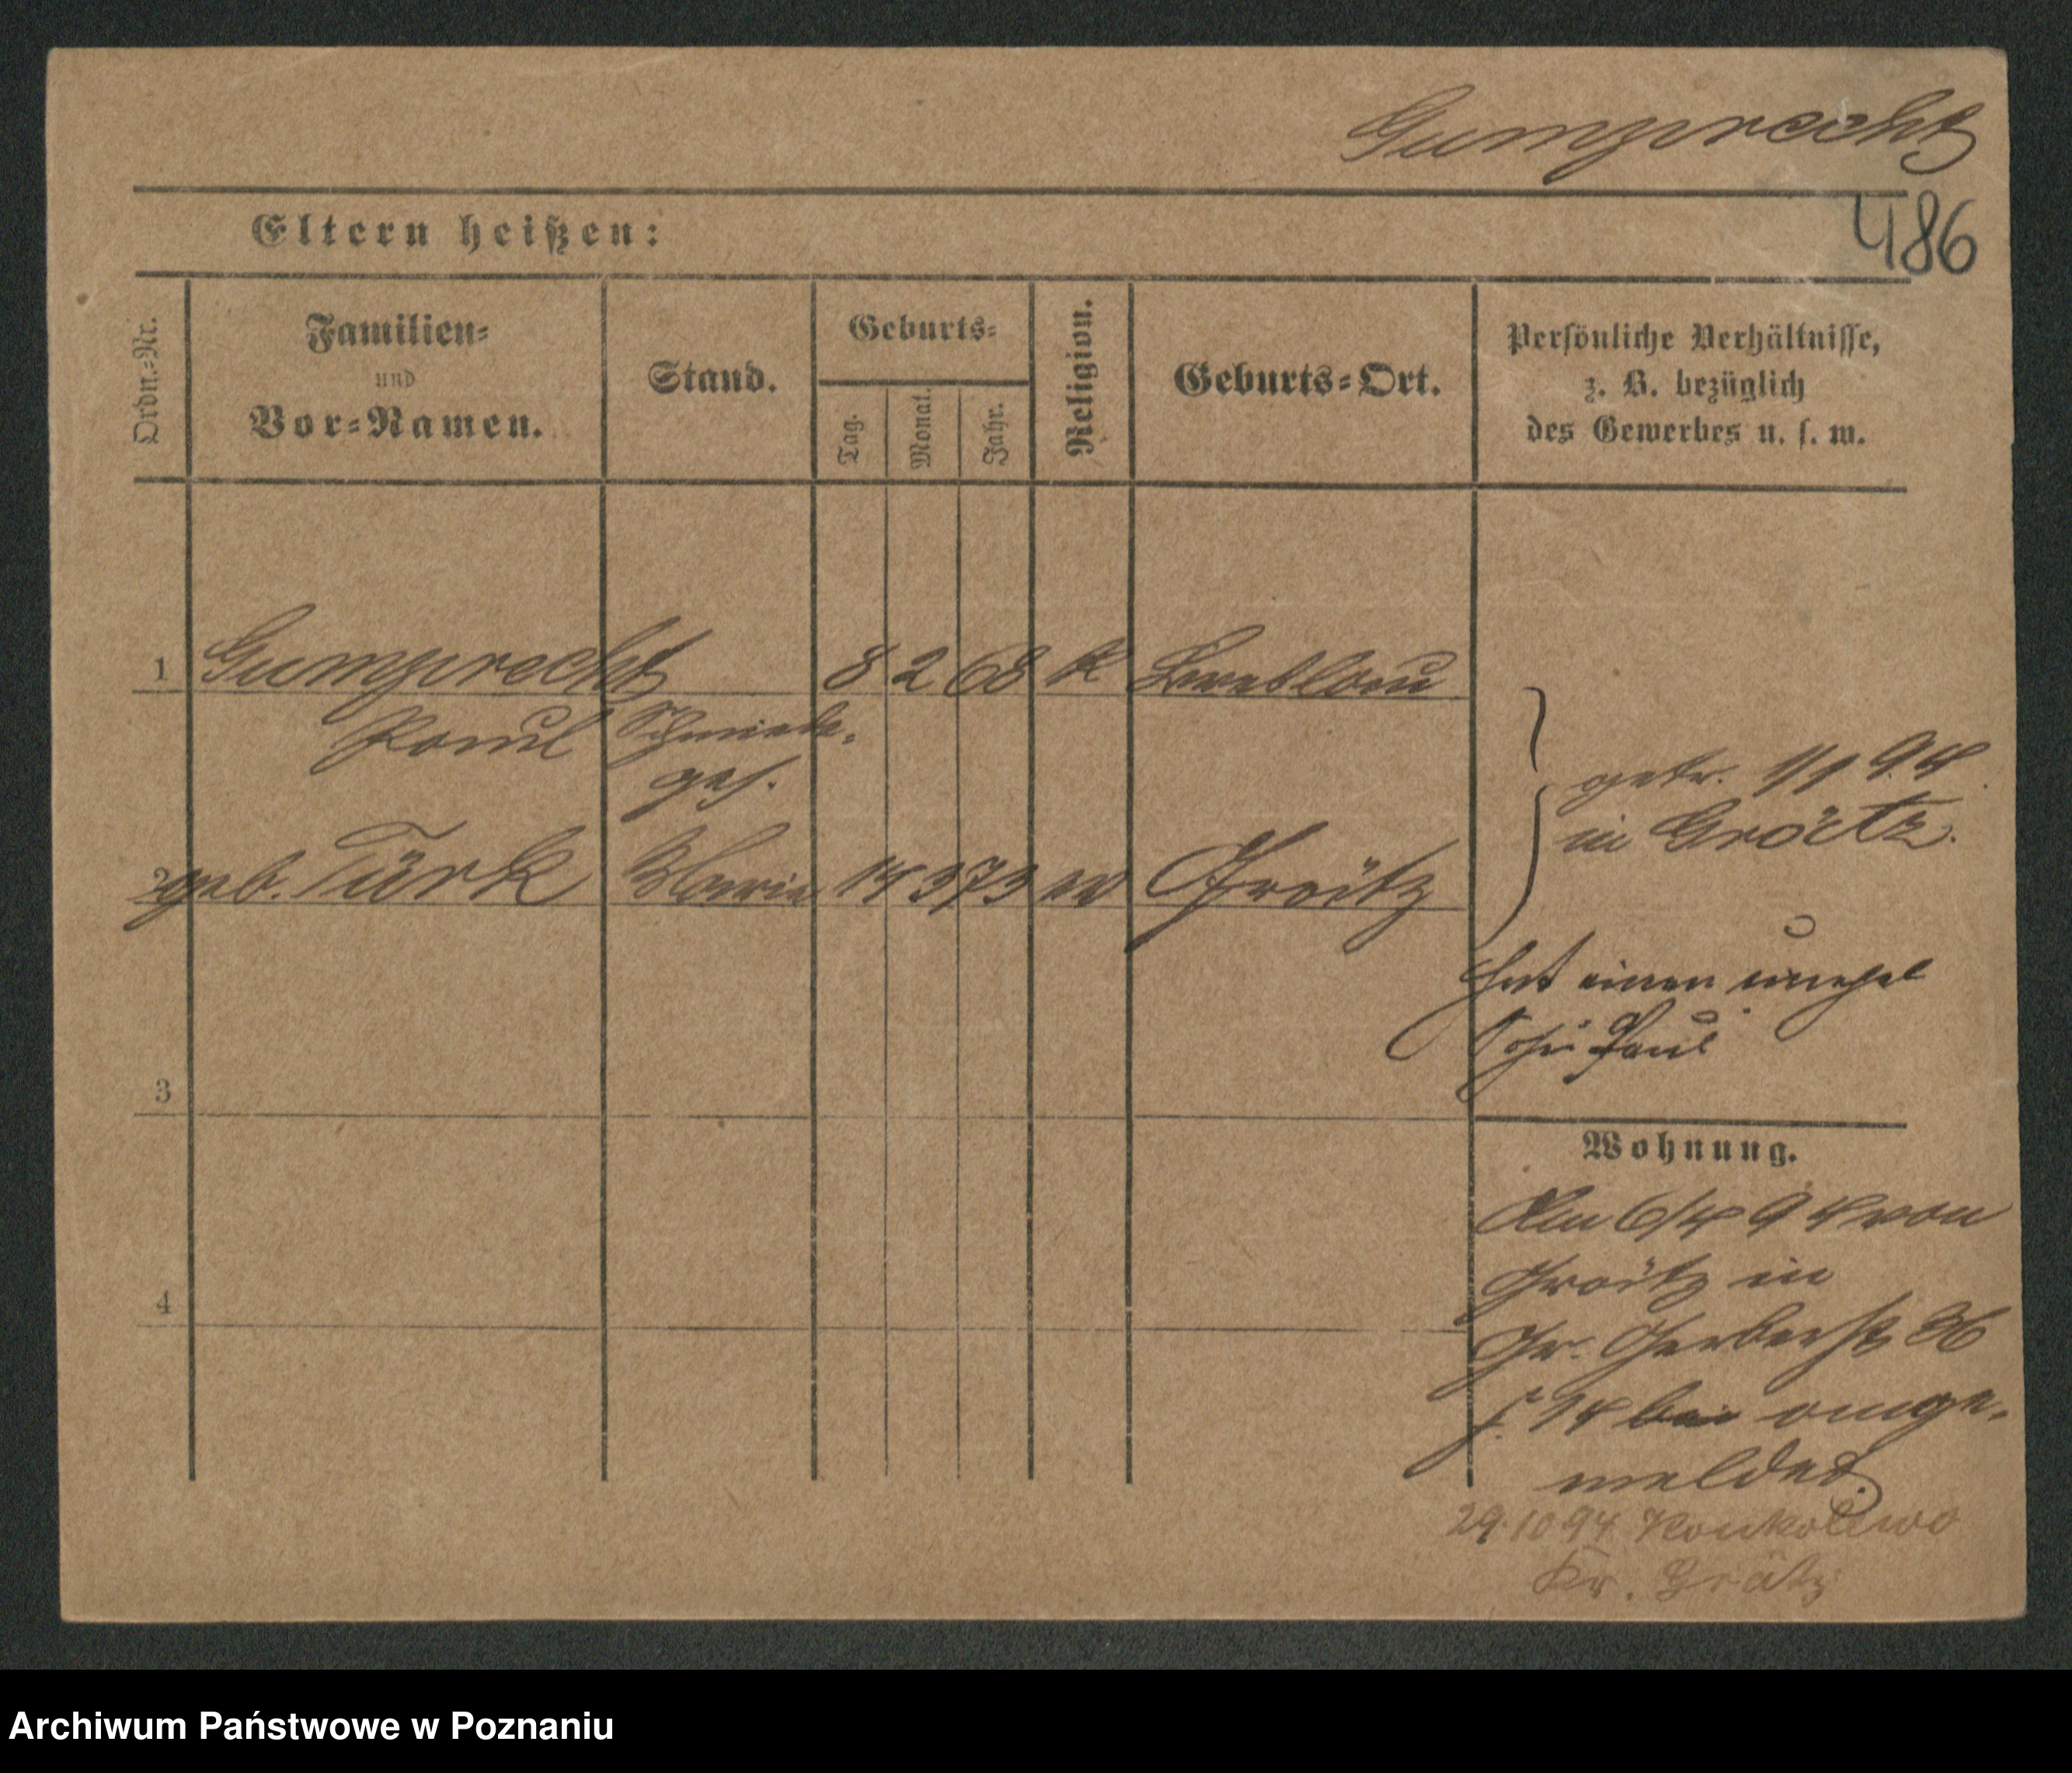 Gumprecht
486
Eltern heißen:
Ordn.-Nr.
Familien-
und
Vor-Namen.
Stand.
Geburts-
Tag.
Monat.
Jahr.
Religion.
Geburts-Ort.
Persönliche Verhältnisse,
z. B. bezüglich
des Gewerbes u. s. w.
1 Gumprecht 8 2 68 k
Paul Schmiede-
ges.
getr. 1/1 94
in Grätz.
2 geb. Türk Marie 14 3 73 Grätz
hat einen unehel
Sohn Paul
3
Wohnung.
Am 6/4 94 von
Grätz in
4
Gr. Gerberstr 36
f. 14 ange-
meldet.
29.10 94
Kr. Grätz
Archiwum Państwowe w Poznaniu